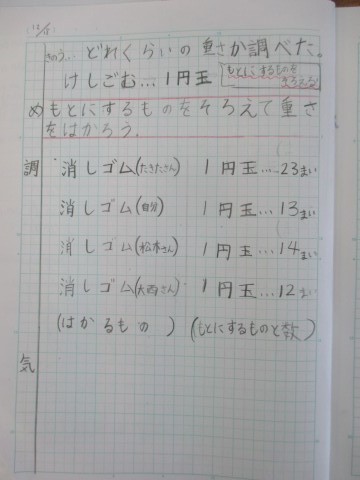 (12/5)
きのう… どれくらいの重さか調べた。
けしごむ…1円玉
もとにするものを
そろえる!
め もとにするものをそろえて重さ
をはかろう。
調 消しゴム(たきたさん) 1円玉……23まい
消しゴム(自分) 1円玉…13まい
消しゴム(松本さん) 1円玉…14まい
消しゴム(大西さん) 1円玉…12まい
(はかるもの) (もとにするものと数)
気